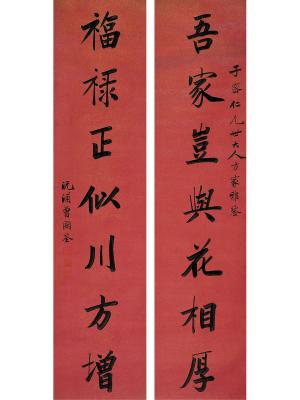 子密仁兄世大人方家雅鉴
吾家岂與花相厚
福禄正似川方增
沅浦曾國荃